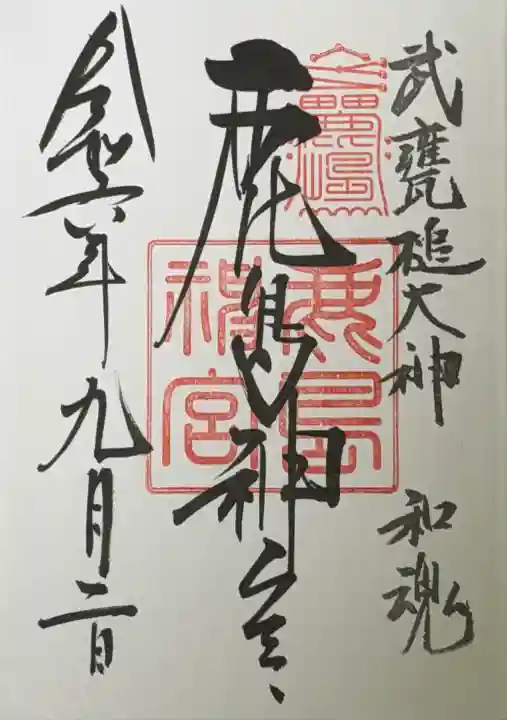 武甕槌大神 和魂
鹿島神宮
鹿島
神宮
令和六年 九月二日